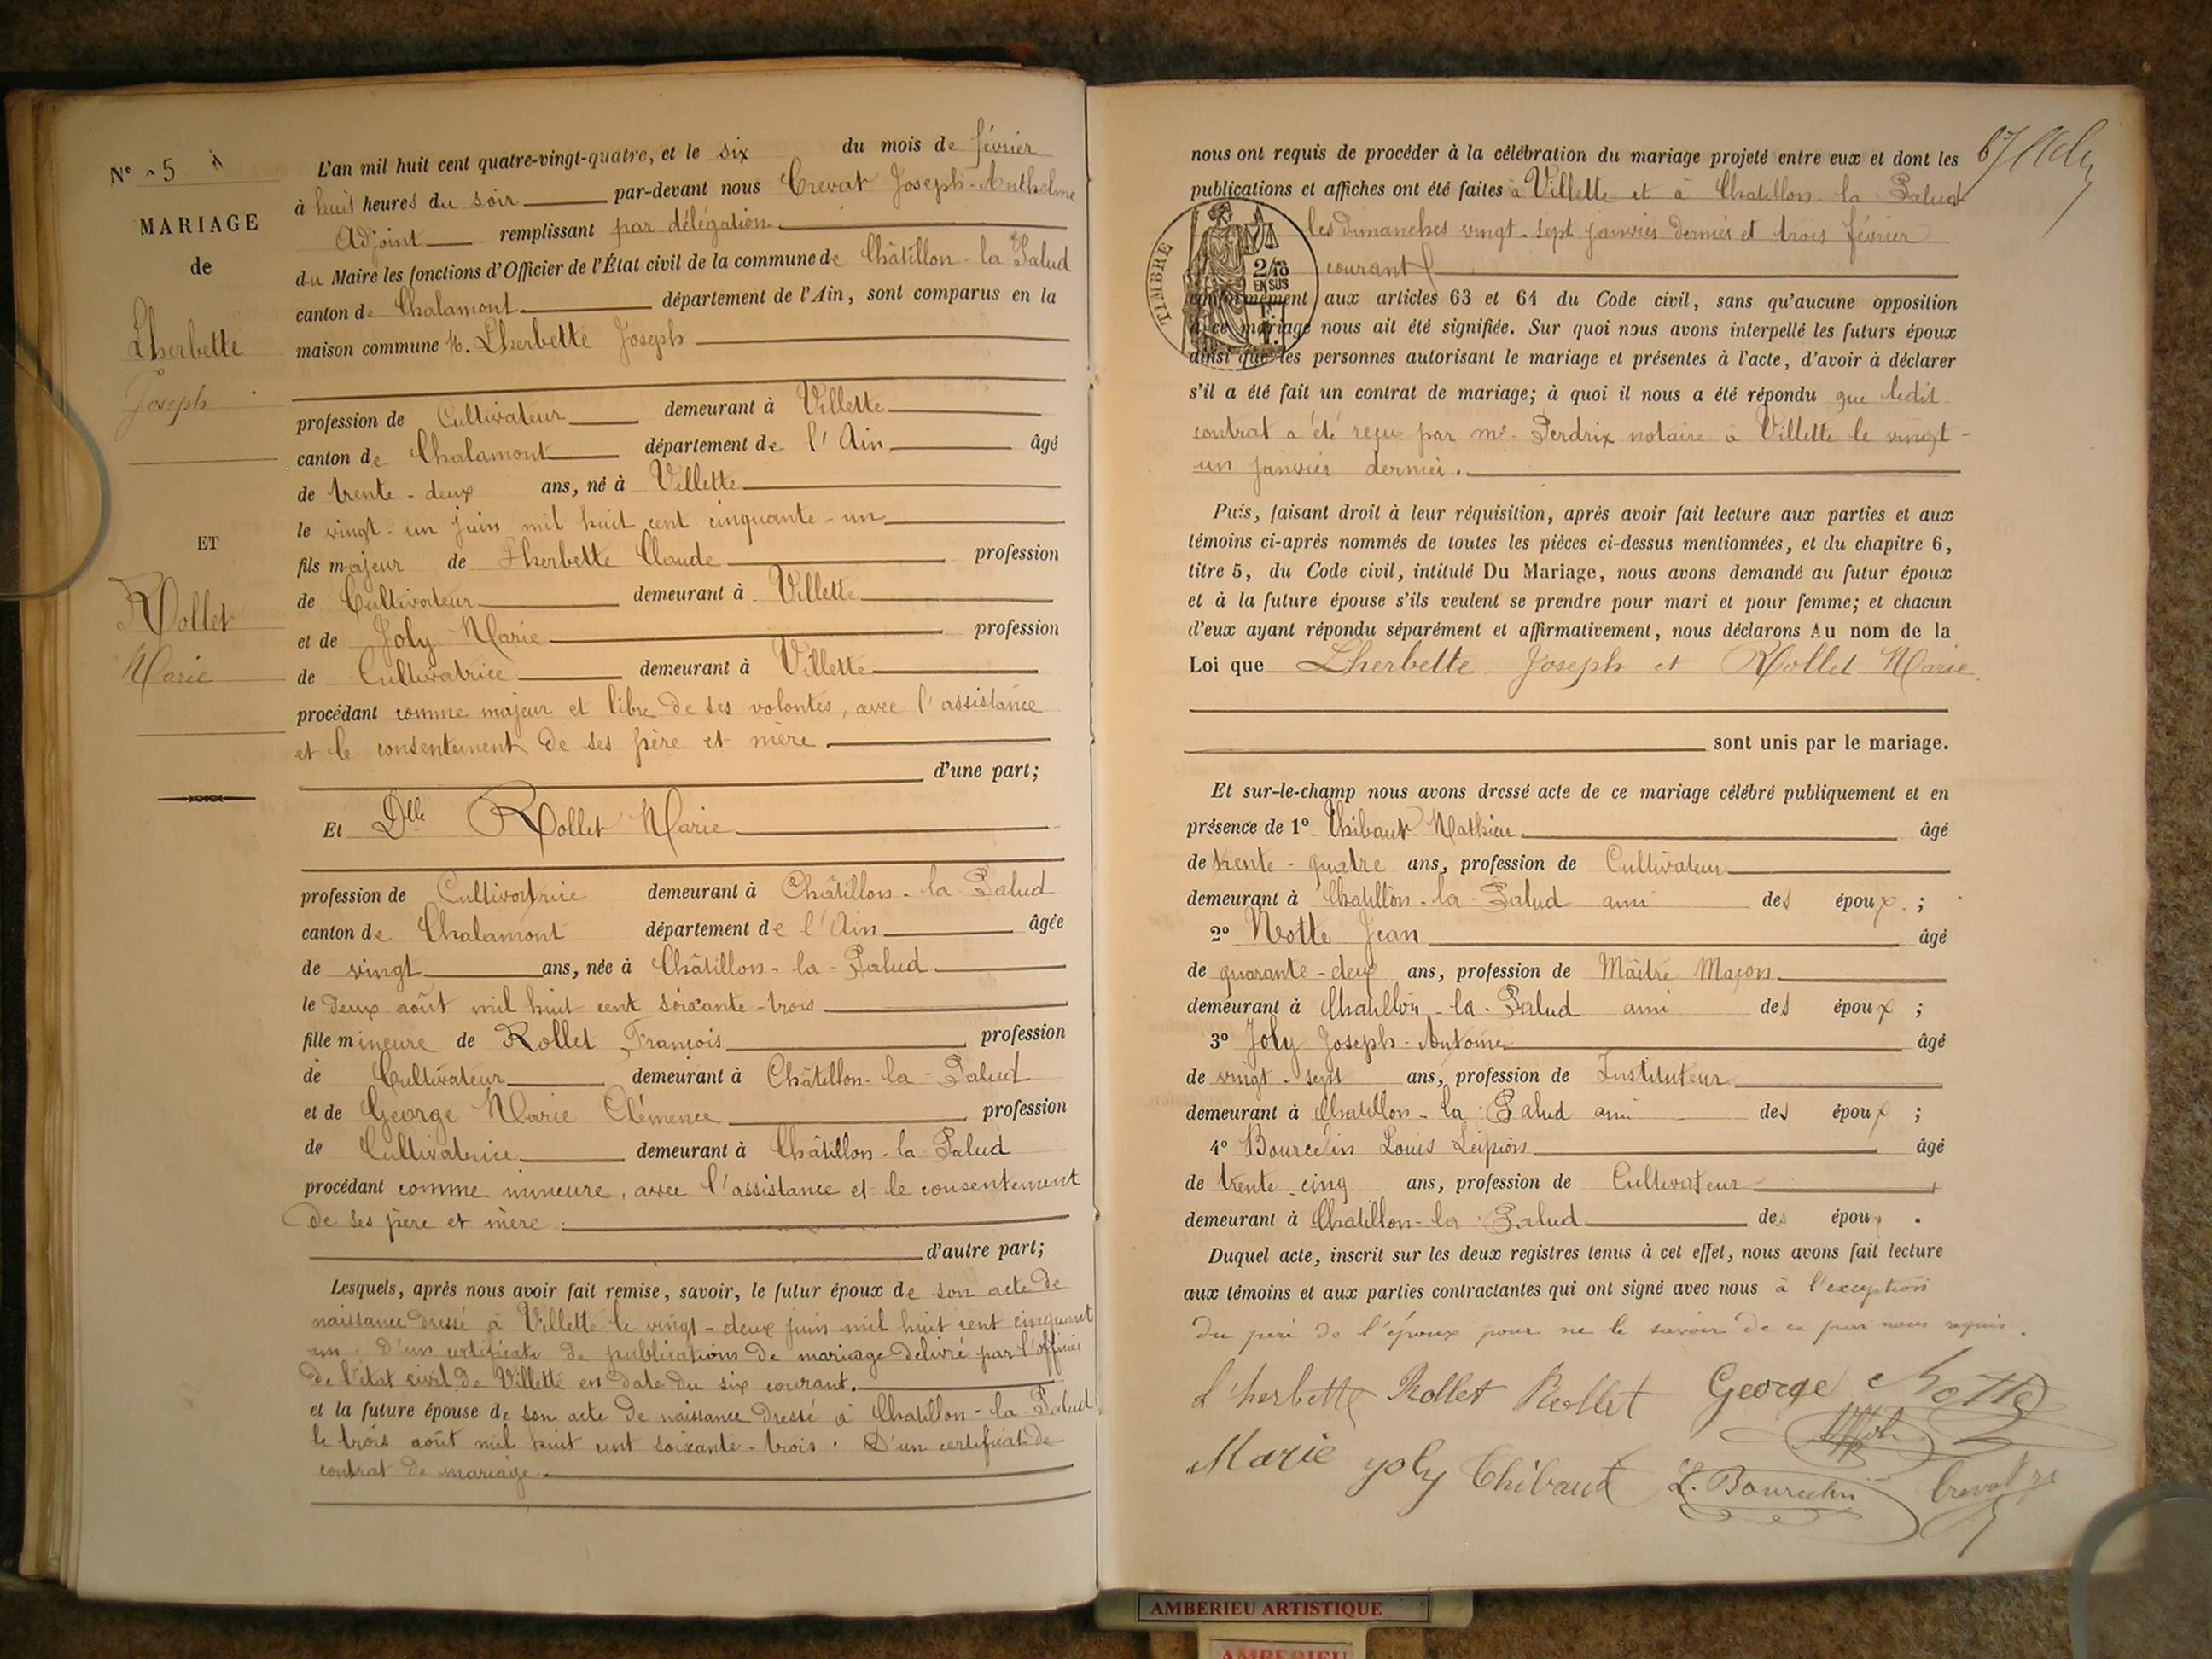 N° 5
MARIAGE
de
Lherbette
Joseph
ET
Rollet
Marie
L'an mil huit cent quatre-vingt-quatre, et le six du mois de février
à huit heures du soir par-devant nous Crevat Joseph-Anthelme
Adjoint remplissant par délégation
du Maire les fonctions d'Officier de l'État civil de la commune de Châtillon-la Palud
canton de Chalamont département de l'Ain, sont comparus en la
maison commune M. Lherbette Joseph
profession de Cultivateur demeurant à Villette
canton de Chalamont département de l'Ain âgé
de trente-deux ans, né à Villette
le vingt-un juin mil huit cent cinquante-un
fils majeur de Lherbette Claude profession
de Cultivateur demeurant à Villette
et de Joly Marie profession
de Cultivatrice demeurant à Villette
procédant comme majeur et libre de ses volontés, avec l'assistance
et le consentement de ses père et mère
d'une part;
Et Dlle Rollet Marie
profession de Cultivatrice demeurant à Châtillon-la Palud
canton de Chalamont département de l'Ain âgée
de vingt ans, née à Châtillon-la-Palud
le deux août mil huit cent soixante-trois
fille mineure de Rollet François profession
de Cultivateur demeurant à Châtillon-la-Palud
et de George Marie Clémence profession
de Cultivatrice demeurant à Châtillon-la Palud
procédant comme mineure, avec l'assistance et le consentement
de ses père et mère.
d'autre part;
Lesquels, après nous avoir fait remise, savoir, le futur époux de son acte de
naissance dressé à Villette le vingt-deux juin mil huit cent cinquant
un. D'un certificats de publications de mariage délivré par l'officier
de l'état civil de Villette en date du six courant.
et la future épouse de son acte de naissance dressé à Chatillon-la-Palud
le trois août mil huit cent soixante-trois. D'un certificat de
contrat de mariage.
nous ont requis de procéder à la célébration du mariage projeté entre eux et dont les
publications et affiches ont été faites à Villette et à Chatillon-la Palud
les dimanches vingt-sept janvier dernier et trois février
courant
TIMBRE
2/10
EN SUS
conformément aux articles 63 et 64 du Code civil, sans qu'aucune opposition
à ce mariage nous ait été signifiée. Sur quoi nous avons interpellé les futurs époux
ainsi que les personnes autorisant le mariage et présentes à l'acte, d'avoir à déclarer
s'il a été fait un contrat de mariage; à quoi il nous a été répondu que ledit
contrat a été reçu par me. Perdrix notaire à Villette le vingt-
un janvier dernier.
Puis, faisant droit à leur réquisition, après avoir fait lecture aux parties et aux
témoins ci-après nommés de toutes les pièces ci-dessus mentionnées, et du chapitre 6,
titre 5, du Code civil, intitulé Du Mariage, nous avons demandé au futur époux
et à la future épouse s'ils veulent se prendre pour mari et pour femme; et chacun
d'eux ayant répondu séparément et affirmativement, nous déclarons Au nom de la
Loi que Lherbette Joseph et Rollet Marie
sont unis par le mariage.
Et sur-le-champ nous avons dressé acte de ce mariage célébré publiquement et en
présence de 1° Thibaut Mathieu âgé
de trente-quatre ans, profession de Cultivateur
demeurant à Chatillon-la-Palud ami des époux;
2° Notte Jean âgé
de quarante-deux ans, profession de Maître Maçon
demeurant à Chatillon-la-Palud ami des époux;
3° Joly Joseph-Antoine âgé
de vingt-sept ans, profession de Instituteur
demeurant à Chatillon-la Palud ami des époux;
4° Bourcelin Louis Scipion âgé
de trente-cinq ans, profession de Cultivateur
demeurant à Chatillon-la Palud des époux.
Duquel acte, inscrit sur les deux registres tenus à cet effet, nous avons fait lecture
aux témoins et aux parties contractantes qui ont signé avec nous à l'exception
du père de l'époux pour ne le savoir de ce par nous requis.
L'herbette Rollet Rollet George Notte
Marie joly Thibaut L. Bourcelin Crevat
AMBERIEU ARTISTIQUE
AMBERIEU